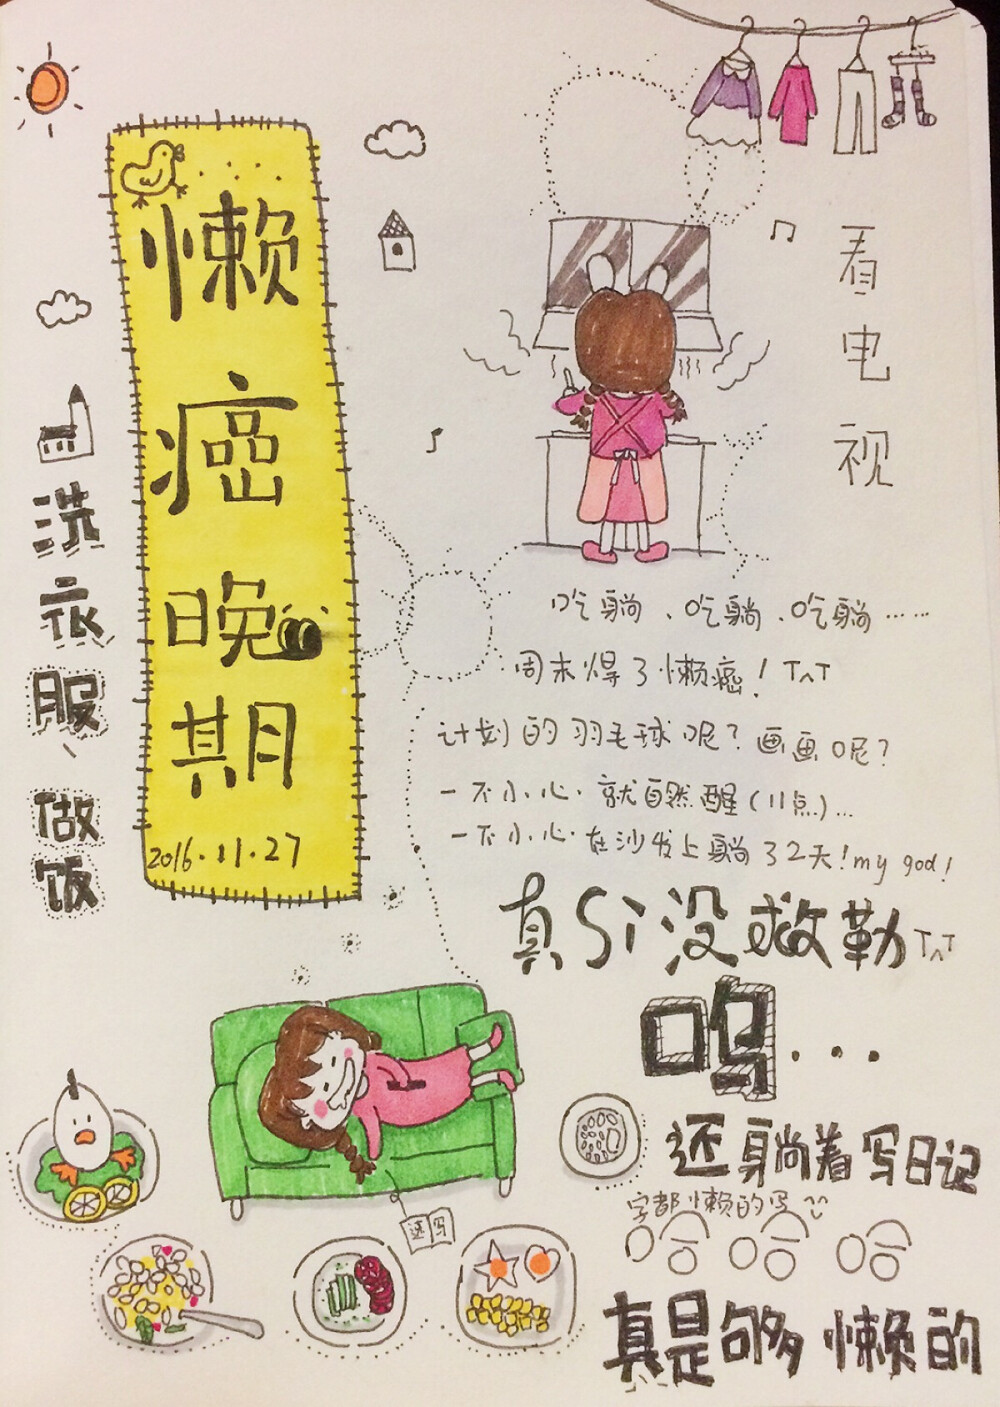 懒癌晚期
2016.11.27
洗衣服、做饭
看电视
吃躺、吃躺、吃躺……
周末得了懒癌！T^T
计划的羽毛球呢？画画呢？
一不小心·就自然醒（11点）…
一不小心·在沙发上躺了2天！my god！
真的没救勒T^T
呜...
还躺着写日记
字都懒的写
哈哈哈
真是够懒的
还写